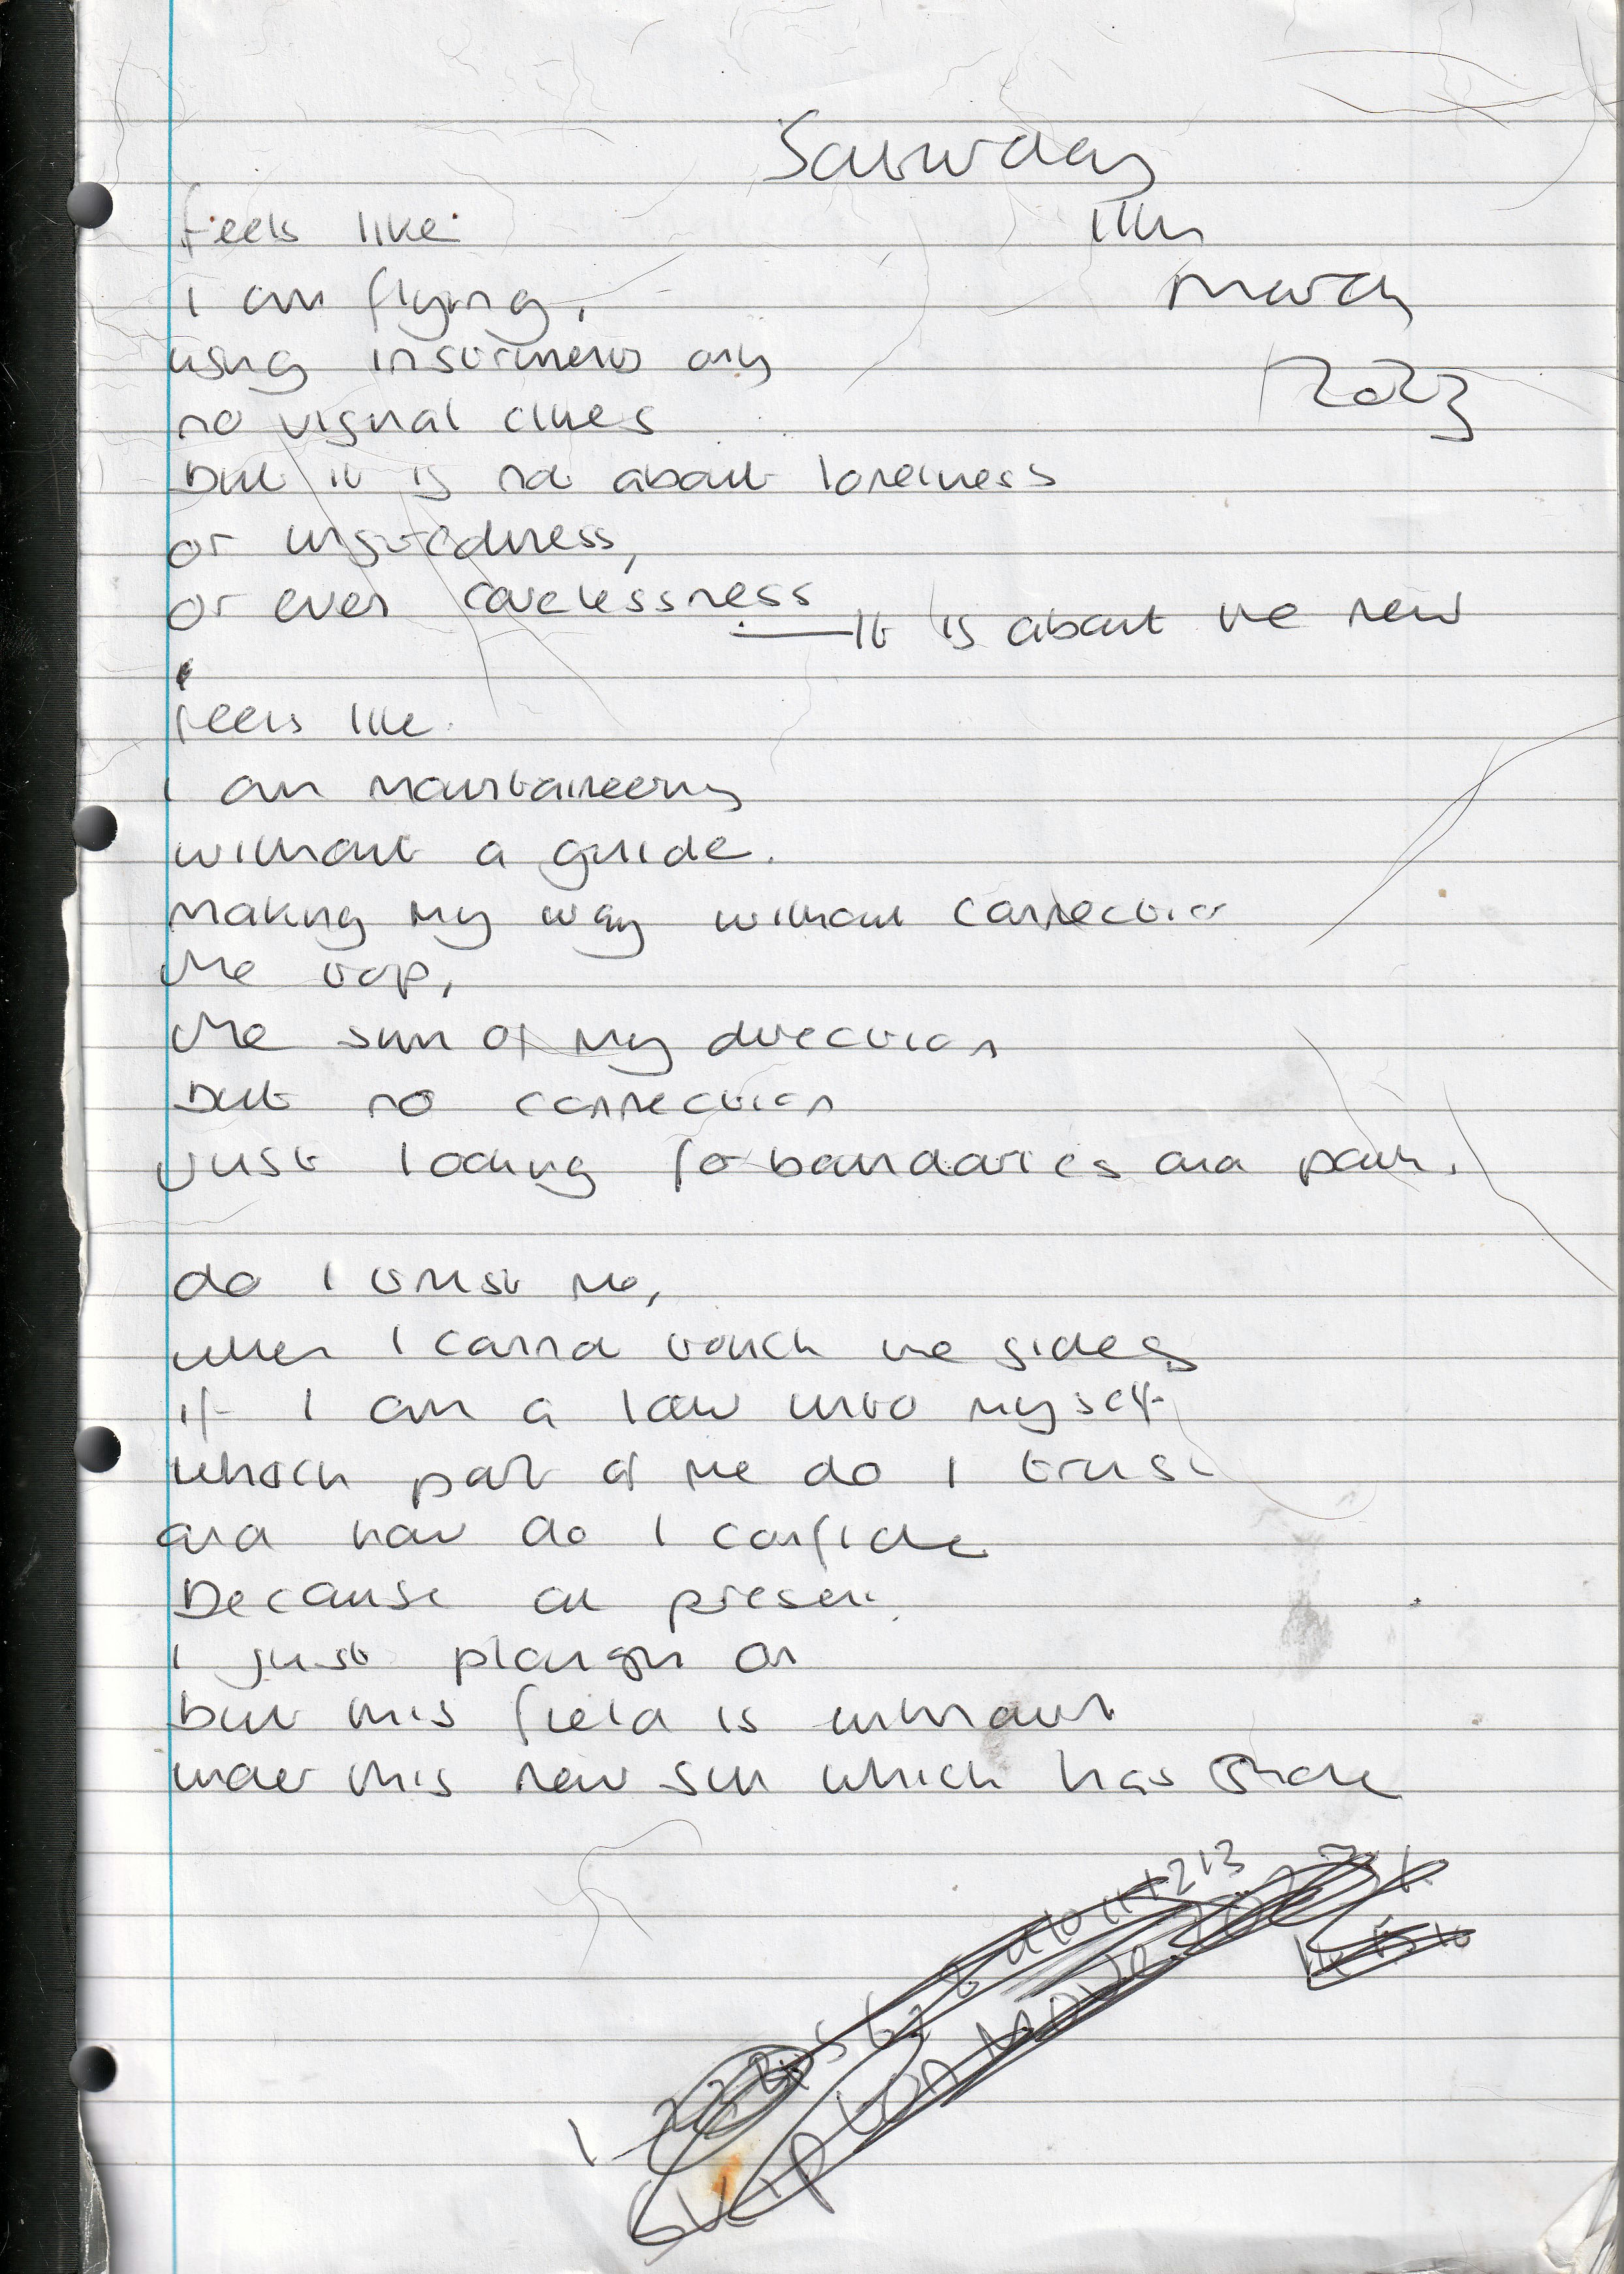 Saturday
11th
March
2023
feels like
I am flying,
using instruments only
no visual clues
but it is not about loneliness
or
or even carelessness
— It is about the new
feels like
I am mountaineering
without a guide.
making my way without connection
the top,
the sum of my direction
but no connection
just looking for boundaries and path.
do I trust me,
when I cannot touch the sides
if I am a law unto myself
which part of me do I trust
and how do I confide
Because at present
I just plough on
but this field is
under this new sun which has shone